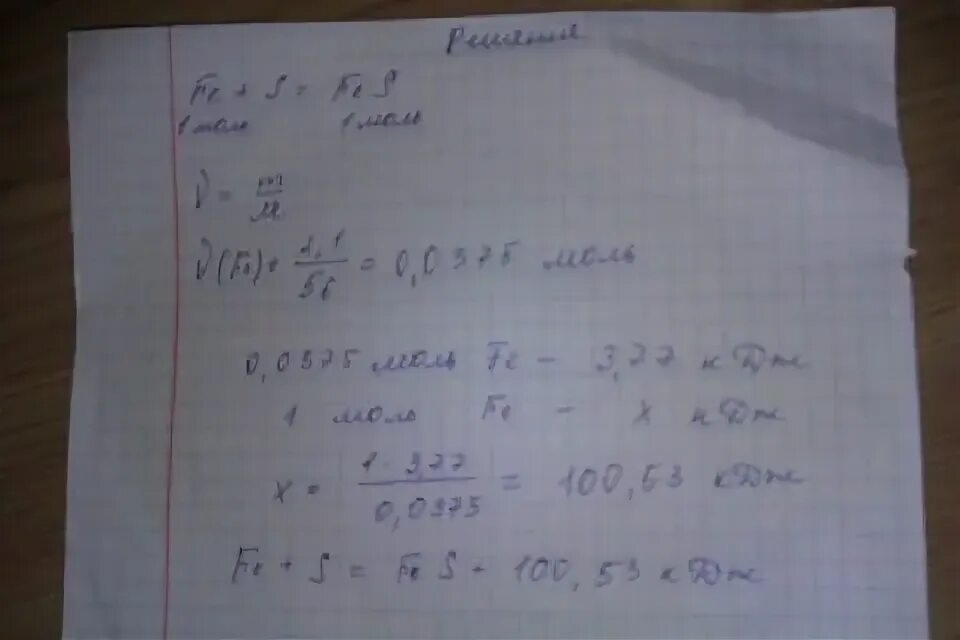 Решение
Fe + S = FeS
1 моль 1 моль
ν = m/M
ν(Fe) = 2,1/56 = 0,0375 моль
0,0375 моль Fe - 3,77 кДж
1 моль Fe - x кДж
x = 1·3,77/0,0375 = 100,53 кДж
Fe + S = FeS + 100,53 кДж